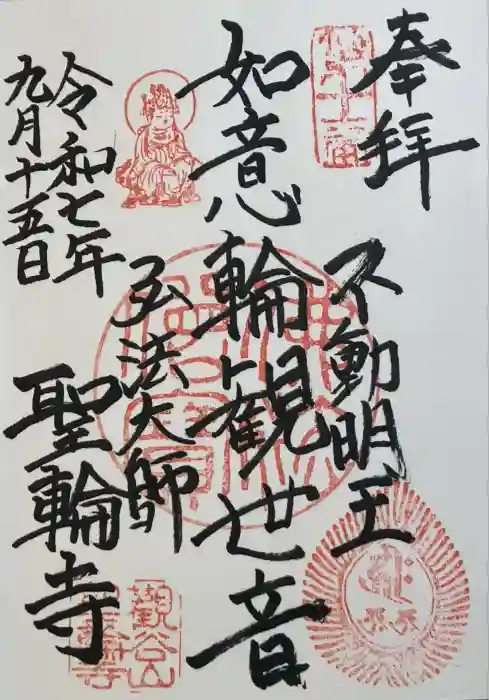 奉拝
不動明王
如意輪観世音
弘法大師
令和七年
九月十五日
聖輪寺
観谷山